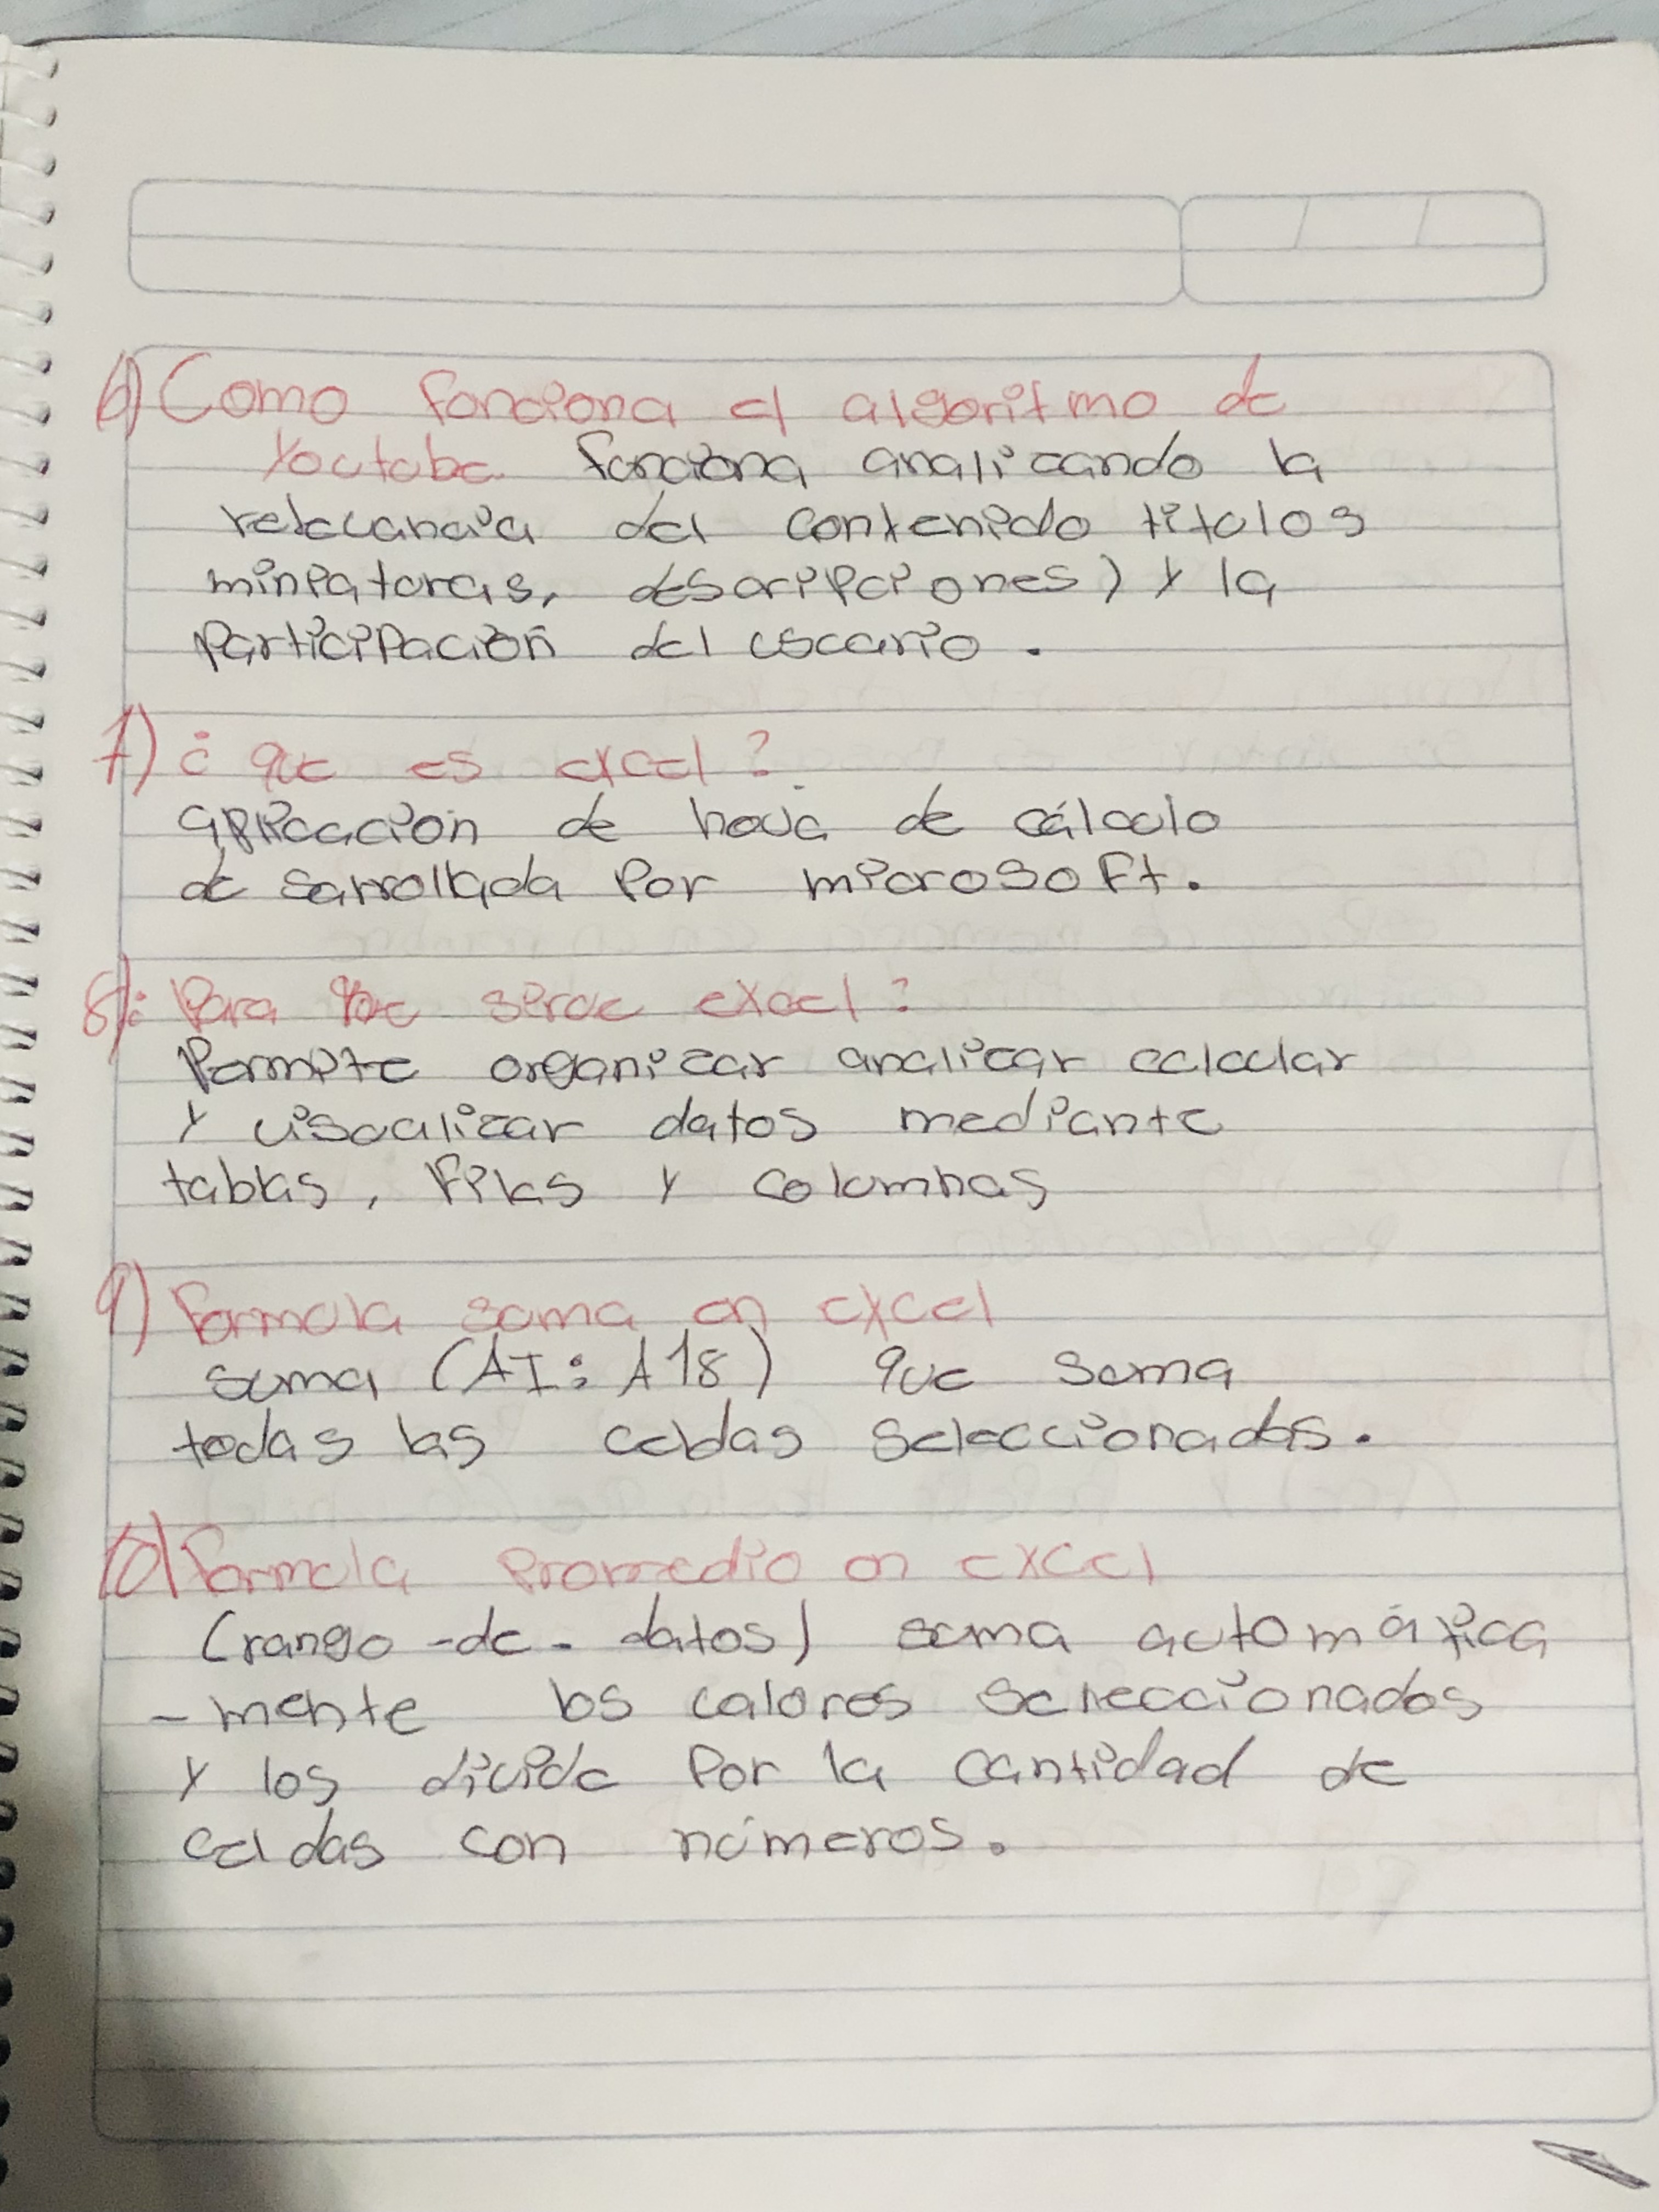 6) Como funciona el algoritmo de
Youtube funciona analizando la
relevancia del contenido titulos
miniaturas, descripciones) y la
Participación del usuario.
7) ¿ que es excel?
aplicación de hoja de cálculo
de sarrollada Por microsoft.
8) ¿ Para que sirve excel?
Permite organizar analizar calcular
y visualizar datos mediante
tablas, Filas y columnas
9) Formula suma en excel
suma (AI: A18) que suma
todas las celdas seleccionadas.
10) formula Promedio en excel
(rango -de- datos) suma automática
- mente los valores selleccionados
y los divide Por la cantidad de
cel das con números.